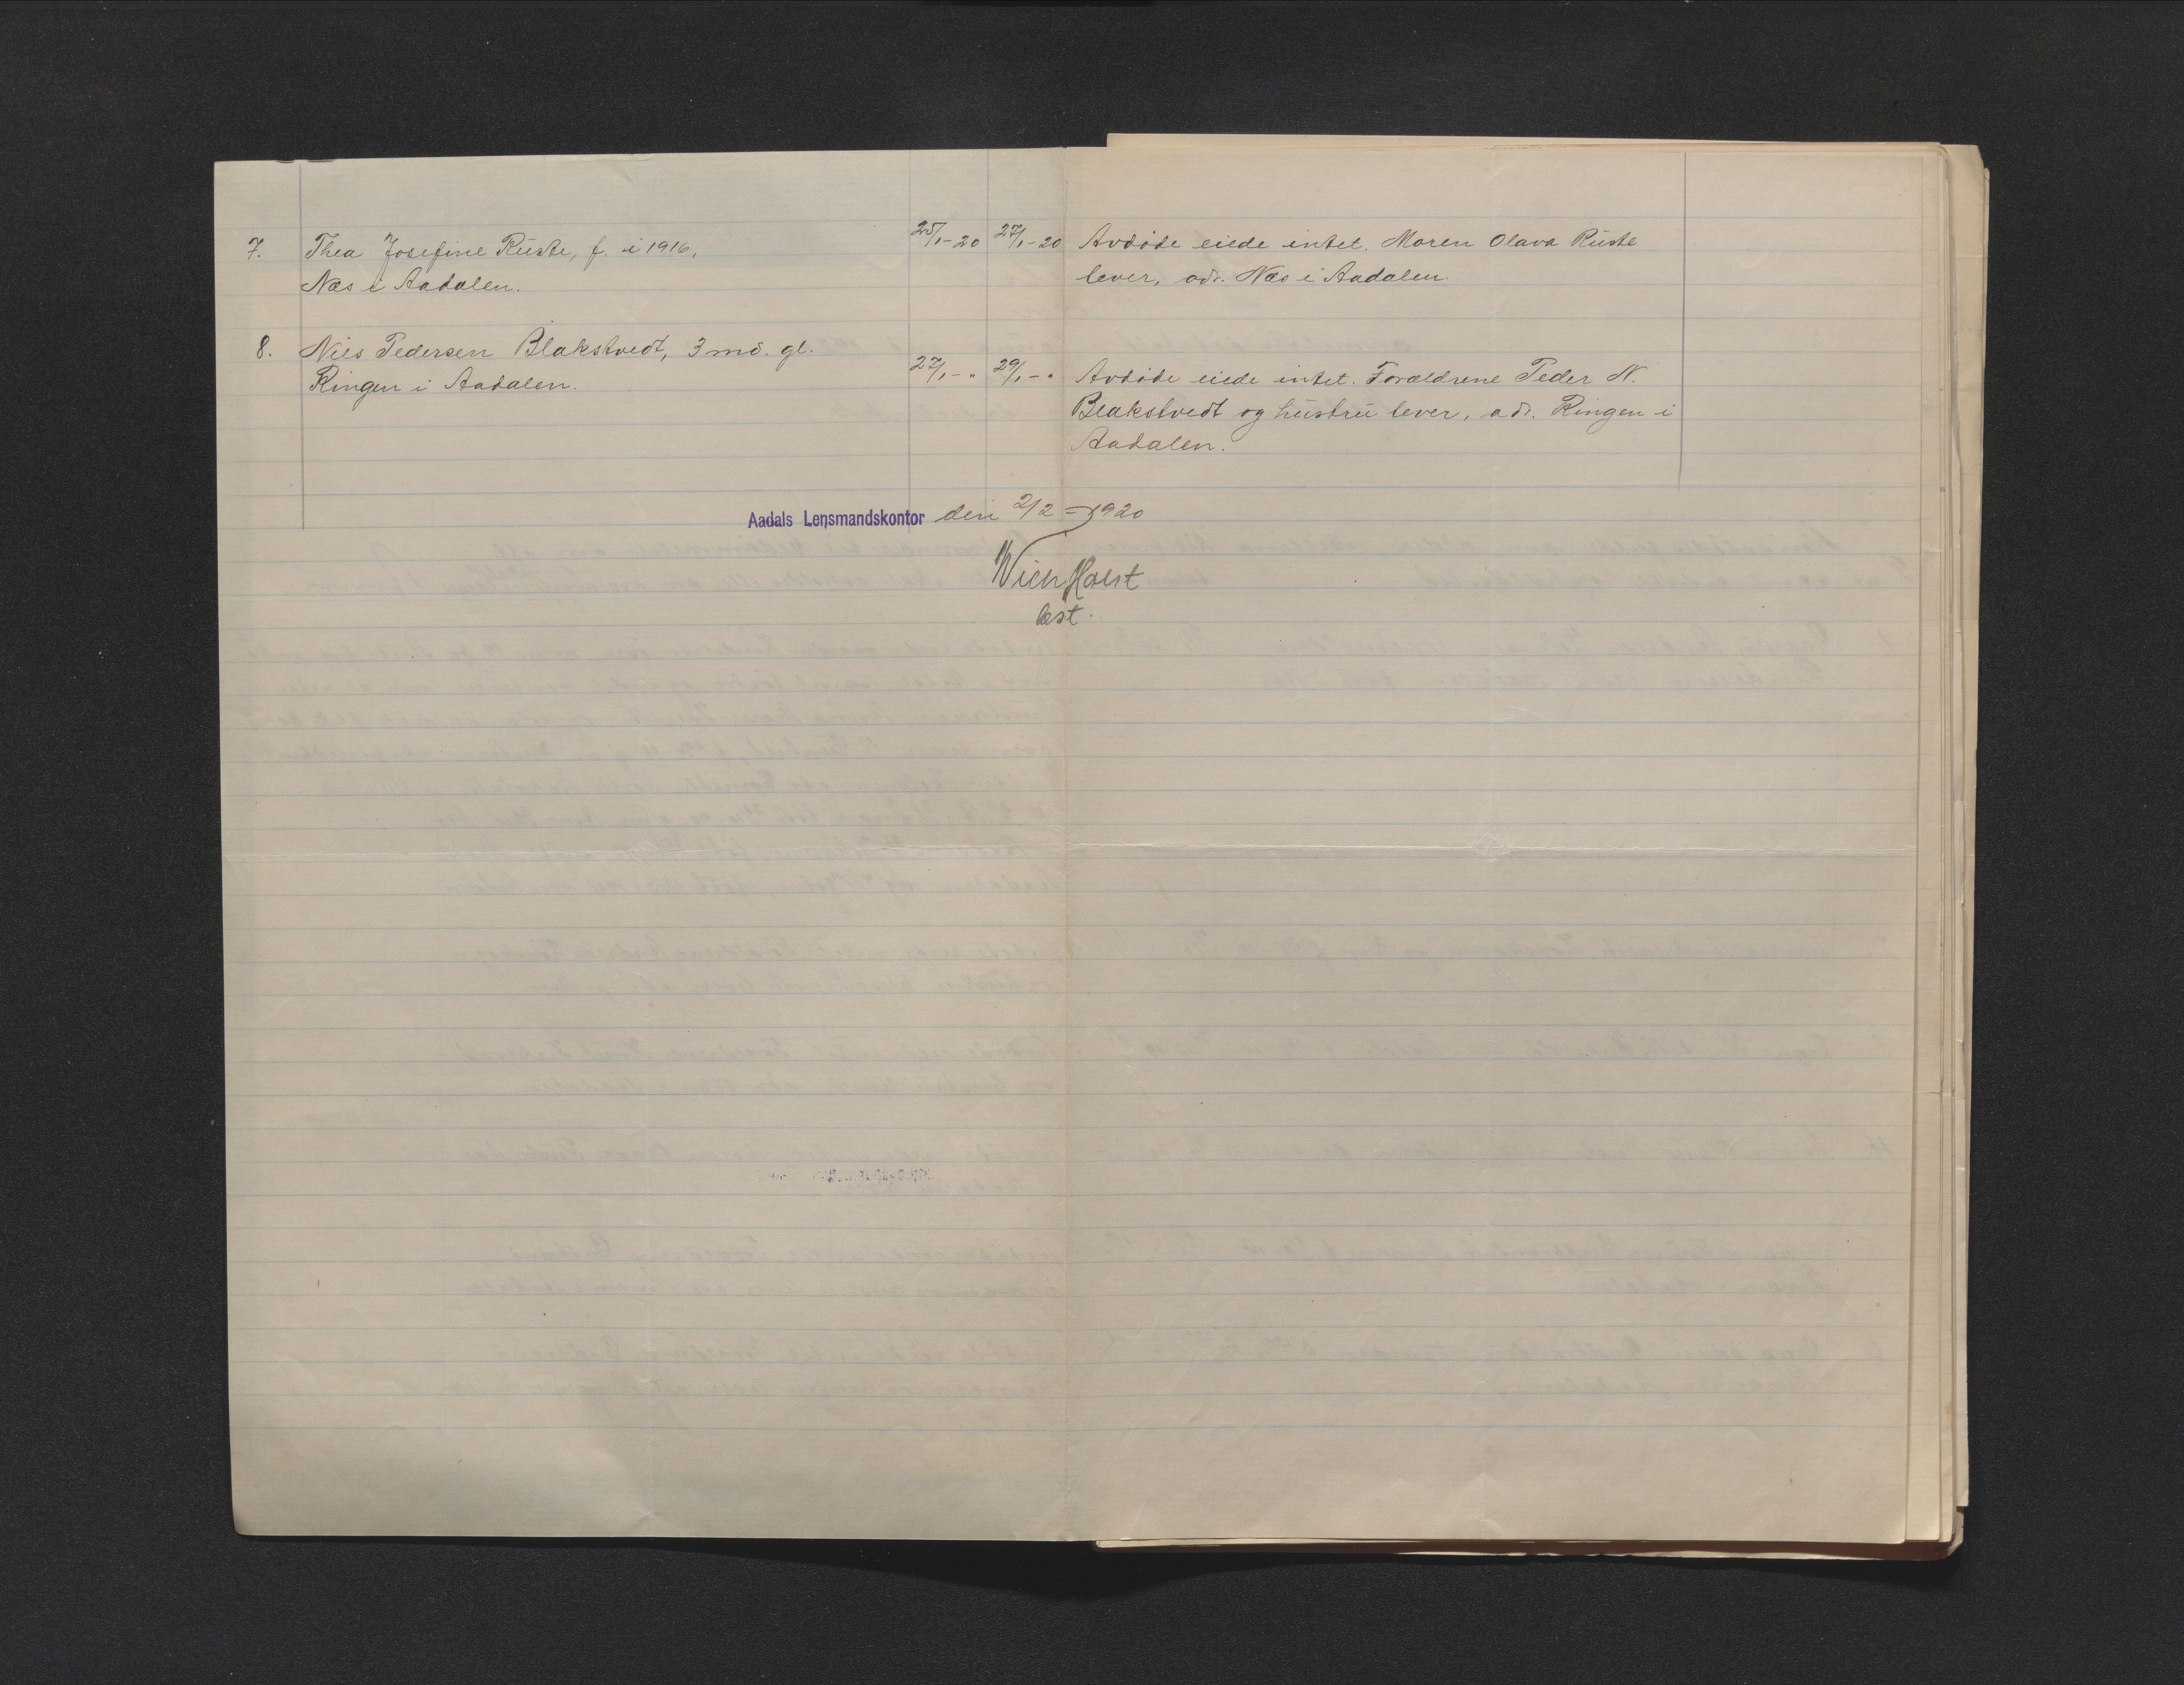 7. Thea Josefine Ruste, f. i 1916, 25/1-20 27/1-20 Avdøde eiede intet. Moren Olava Ruste
Næs i Aadalen. lever, adr. Næs i Aadalen.
8. Nils Pedersen Blakstvedt, 3 md. gl.
Ringen i Aadalen. 27/1-" 29/1-" Avdøde eiede intet. Forældrene Peder N.
Blakstvedt og hustru lever, adr. Ringen i
Aadalen.
Aadals Lensmandskontor den 2/2-1920
Holst
bst.